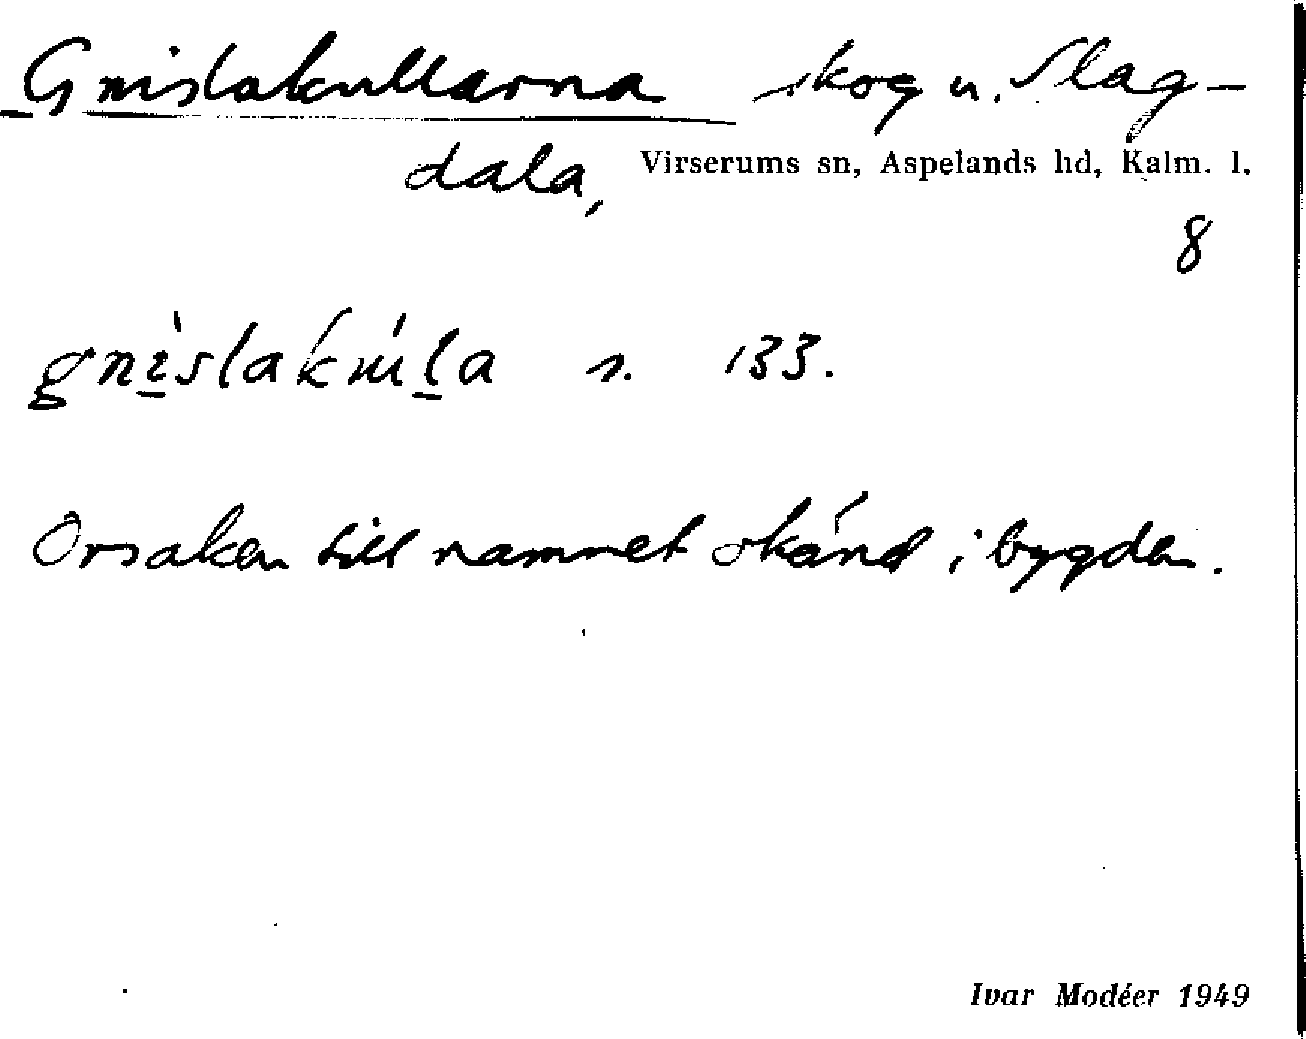 Gnislakullarna skog u. Slag-
dala, Virserums sn, Aspelands hd, Kalm. l.
8
gnìslakúla s. 133.
Orsaken till namnet okänd i bygden.
Ivar Modéer 1949